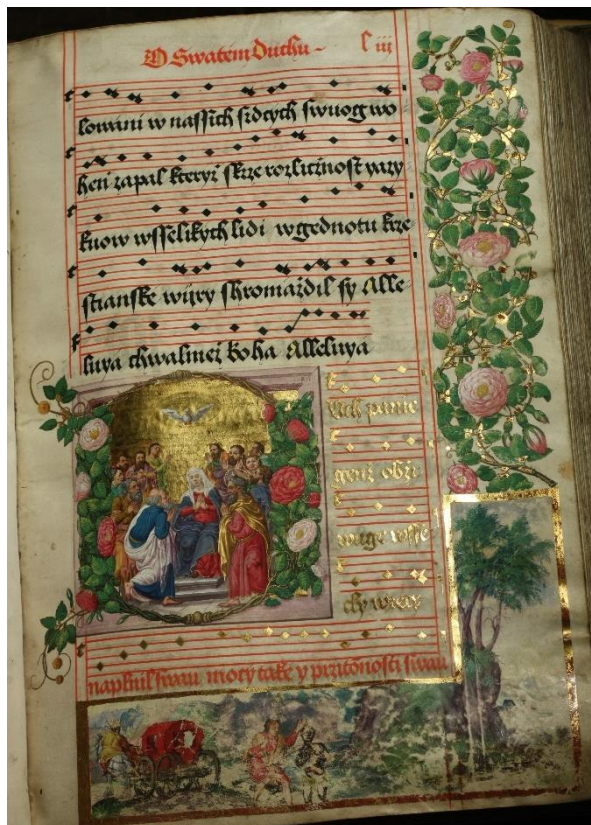 O Swatem Duchu
lowani w nassich srdcych swuog wo
hen zapal kteryz skrze rozlicznost yazy
kuow wsselikych lidi w gednotu krze
stianske wijry shromazdil sy Alle-
luya chwalmez boha Alleluya
Uch panie
genz obzi
wuge wsse
cky wieczy
naplnil swau moczy take y przitomosti swau